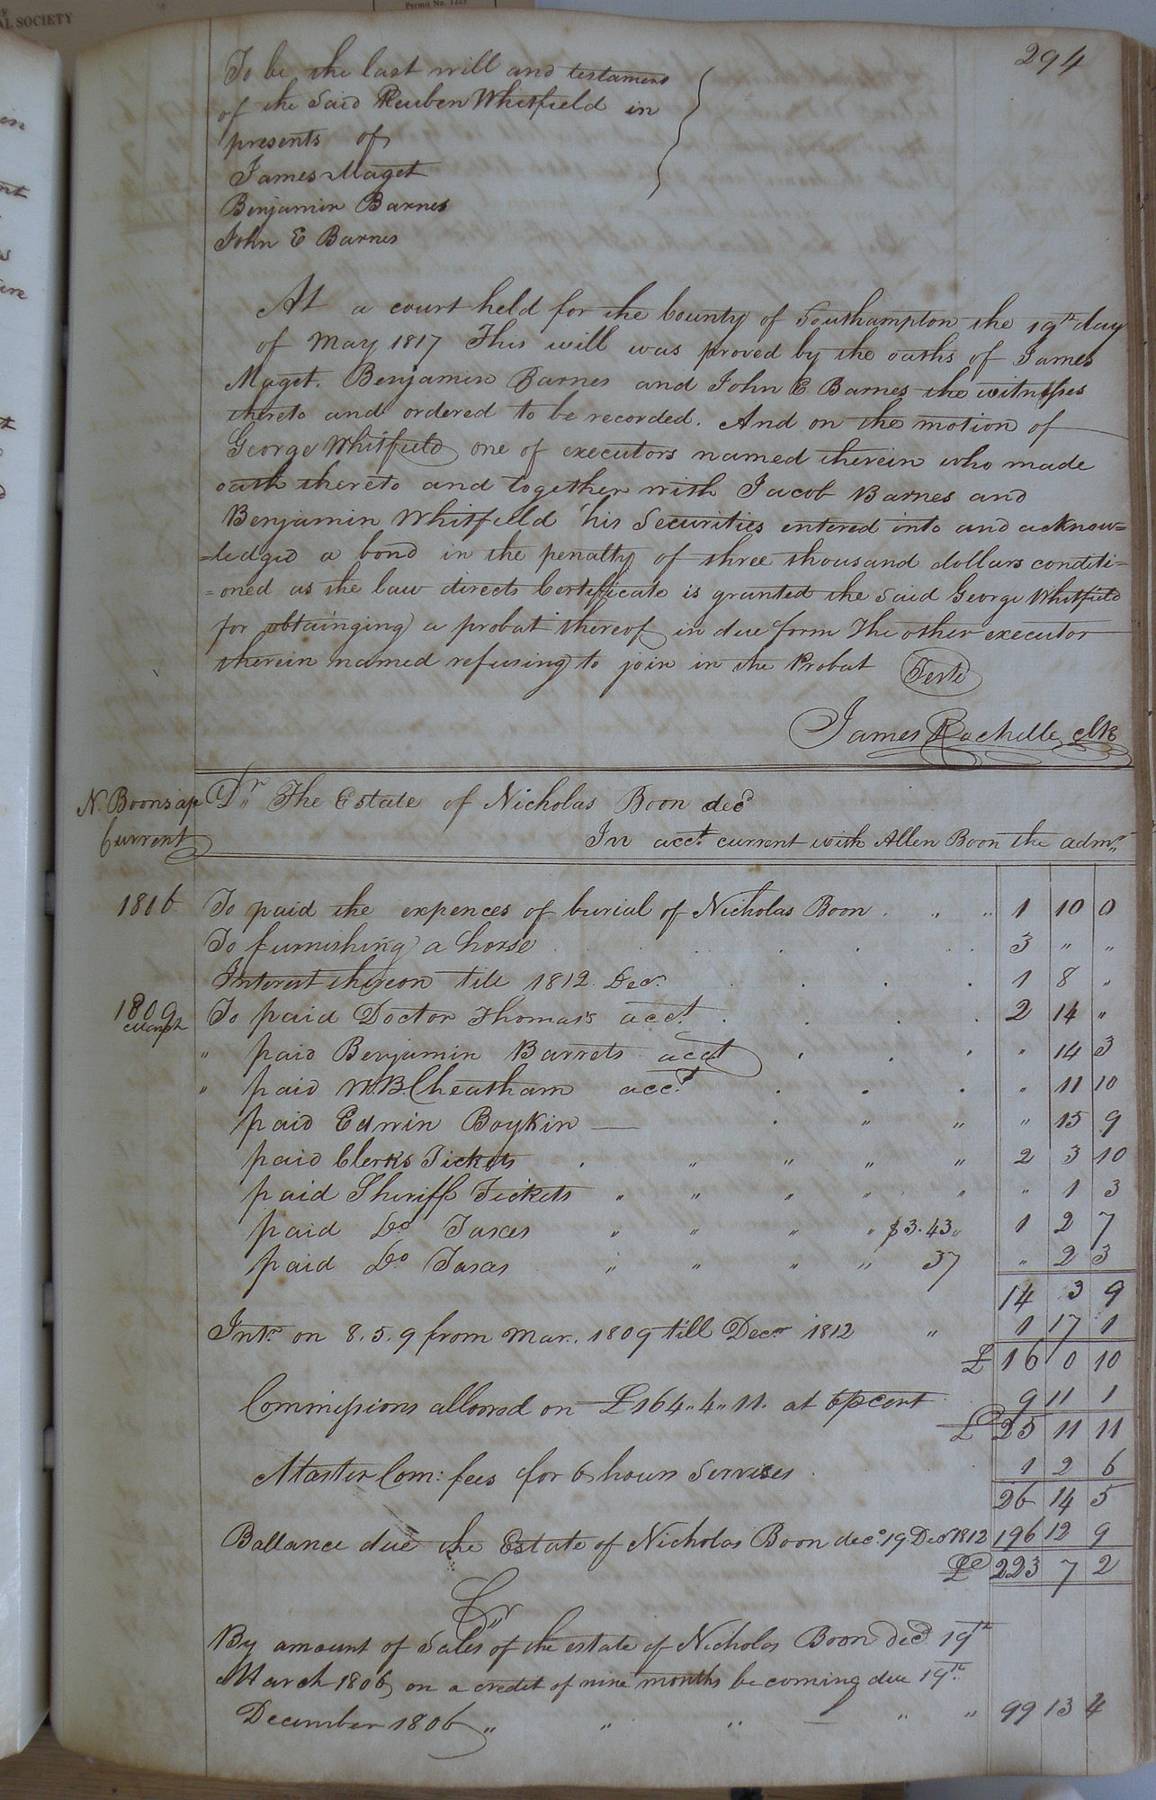 AL SOCIETY
Permit No. 1225
294
To be the last will and testament
of the Said Reuben Whitfield in
presents of
James Maget
Benjamin Barnes
John E Barnes
At a court held for the County of Southampton the 19th day
of May 1817 This will was proved by the oaths of James
Maget. Benjamin Barnes and John E Barnes the witnesses
thereto and ordered to be recorded. And on the motion of
George Whitfield one of executors named therein who made
oath thereto and together with Jacob Barnes and
Benjamin Whitfield his Securities entered into and acknow=
=ledged a bond in the penalty of three thousand dollars conditi=
=oned as the law directs Certificate is granted the Said George Whitfield
for obtainging a probat thereof in due form The other executor
therein named refusing to join in the Probat Teste
James Rochelle clk
N. Boons ap Dr The Estate of Nicholas Boon decd
Current In acct. current with Allen Boon the admr
1806 To paid the expences of burial of Nicholas Boon . " " 1 10 0
To furnishing a horse . . . . 3 " "
Interest thereon till 1812 Decr . . . 1 8 "
1809 To paid Doctor Thomas's acct . . . 2 14 "
March
" paid Benjamin Barrets acct . . . " 14 3
" paid W.B. Cheatham acct . . . " 11 10
paid Edwin Boykin — . " " " 15 9
paid Clerks Tickets . " " " " 2 3 10
paid Sheriff Tickets " " " " " " 1 3
paid Do Taxes " " " " $3.43 " 1 2 7
paid Do Taxes " " " " 37 " 2 3
14 3 9
Intr on 8.5.9 from Mar. 1809 till Decr 1812 " 1 17 1
£ 16 0 10
Commissions allowed on £164..4..11. at 6 pcent 9 11 1
£ 25 11 11
Master Com: fees for 6 hours Services . 1 2 6
26 14 5
Ballance due the Estate of Nicholas Boon decd 19 Decr 1812 196 12 9
£ 223 7 2
Cr
By amount of Sales of the estate of Nicholas Boon decd 19th
March 1806 on a credit of nine months becoming due 19th
December 1806 " " " — " " 99 13 4